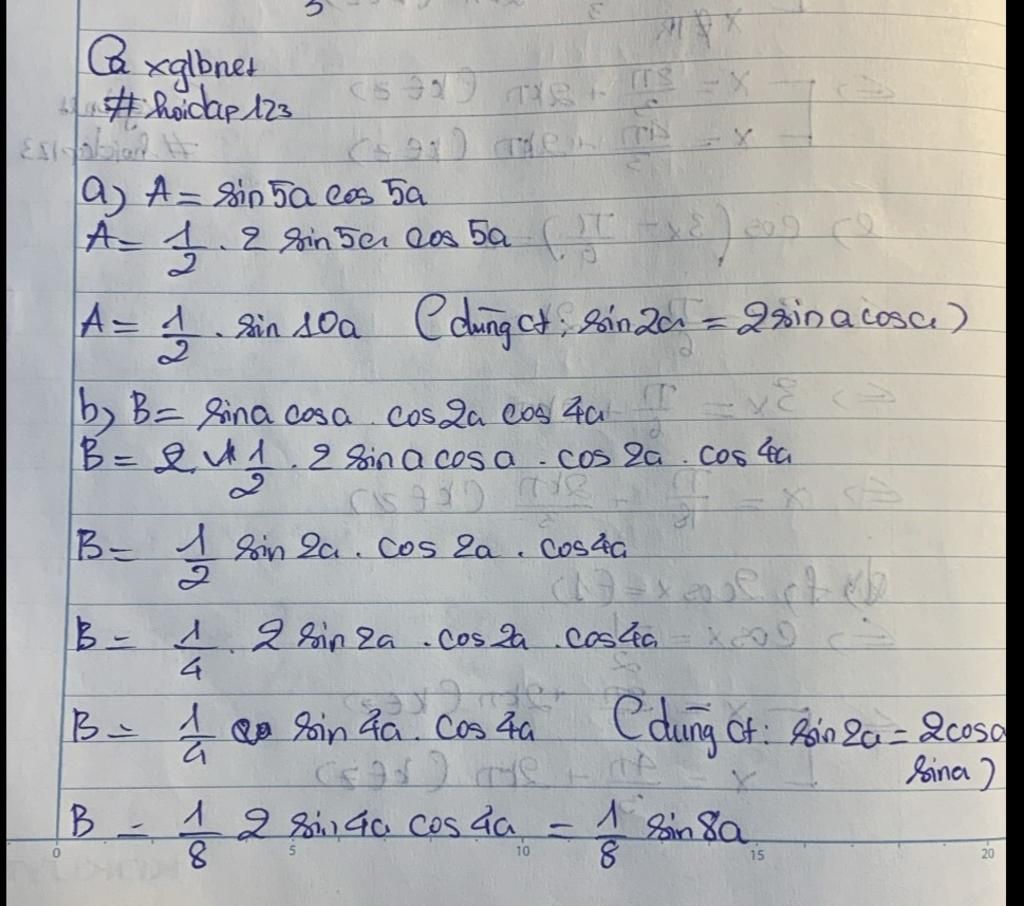 @ xglbnet
#hoidap123
a) A = sin 5a cos 5a
A = 1/2 . 2 sin 5a cos 5a
A = 1/2 . sin 10a (dùng ct: sin2a = 2 sin a cos a)
b) B = sin a cos a . cos 2a cos 4a
B = 1/2 . 2 sin a cos a . cos 2a . cos 4a
B = 1/2 sin 2a . cos 2a . cos 4a
B = 1/4 . 2 sin 2a . cos 2a . cos 4a
B = 1/4 sin 4a . cos 4a (dùng ct: sin 2a = 2 cos a
sin a)
B = 1/8 2 sin 4a cos 4a = 1/8 sin 8a
0 5 10 15 20